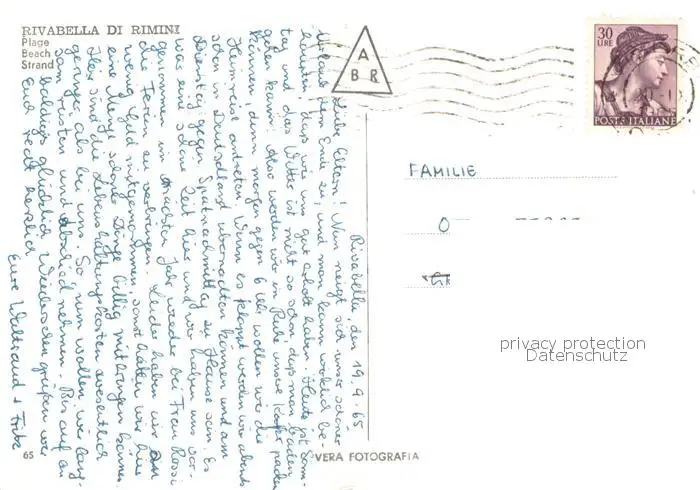 RIVABELLA DI RIMINI
Plage
Beach
Strand
A
B R
30
LIRE
POSTE ITALIANE
Rivabella, den 19.9.65
Liebe Eltern! Nun neigt sich unser schöner
Urlaub dem Ende zu, und man kann wirklich be-
haupten, daß wir uns gut erholt haben. Heute ist Sonn-
tag und das Wetter ist nicht so schön, daß man baden
gehen kann. Also werden wir in Ruhe unsere Koffer packen
können, denn morgen gegen 6 Uhr wollen wir die
Heimreise antreten. Wenn es klappt werden wir abends
schon in Deutschland übernachten können und am
Dienstag gegen Spätnachmittag zu Hause sein. Es
war eine schöne Zeit hier und wir haben uns vor-
genommen im nächsten Jahr wieder bei Frau Rossi
die Ferien zu verbringen. Leider haben wir zu
wenig Geld mitgenommen, sonst hätten wir hier
eine Menge schöne Dinge billig mitbringen können.
Hier sind die Lebenshaltungskosten wesentlich
geringer als bei uns. So, nun wollen wir lang-
sam rüsten und Abschied nehmen. Bis auf ein
baldiges glückliches Wiedersehen grüßen wir
Euch recht herzlich
Eure Waltraud + Fritz
FAMILIE
privacy protection
Datenschutz
65
VERA FOTOGRAFIA